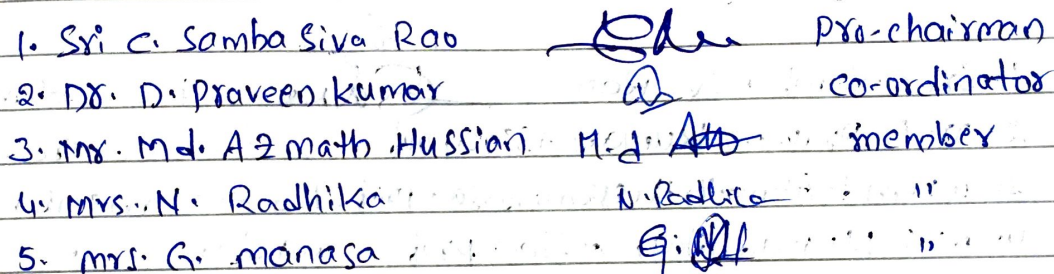 1. Sri C. Samba Siva Rao pro-chairman
2. Dr. D. Praveen kumar co-ordinator
3. Mr. Md. Azmath Hussian M.d. member
4. Mrs. N. Radhika N. Radhika "
5. mrs. G. manasa G. "